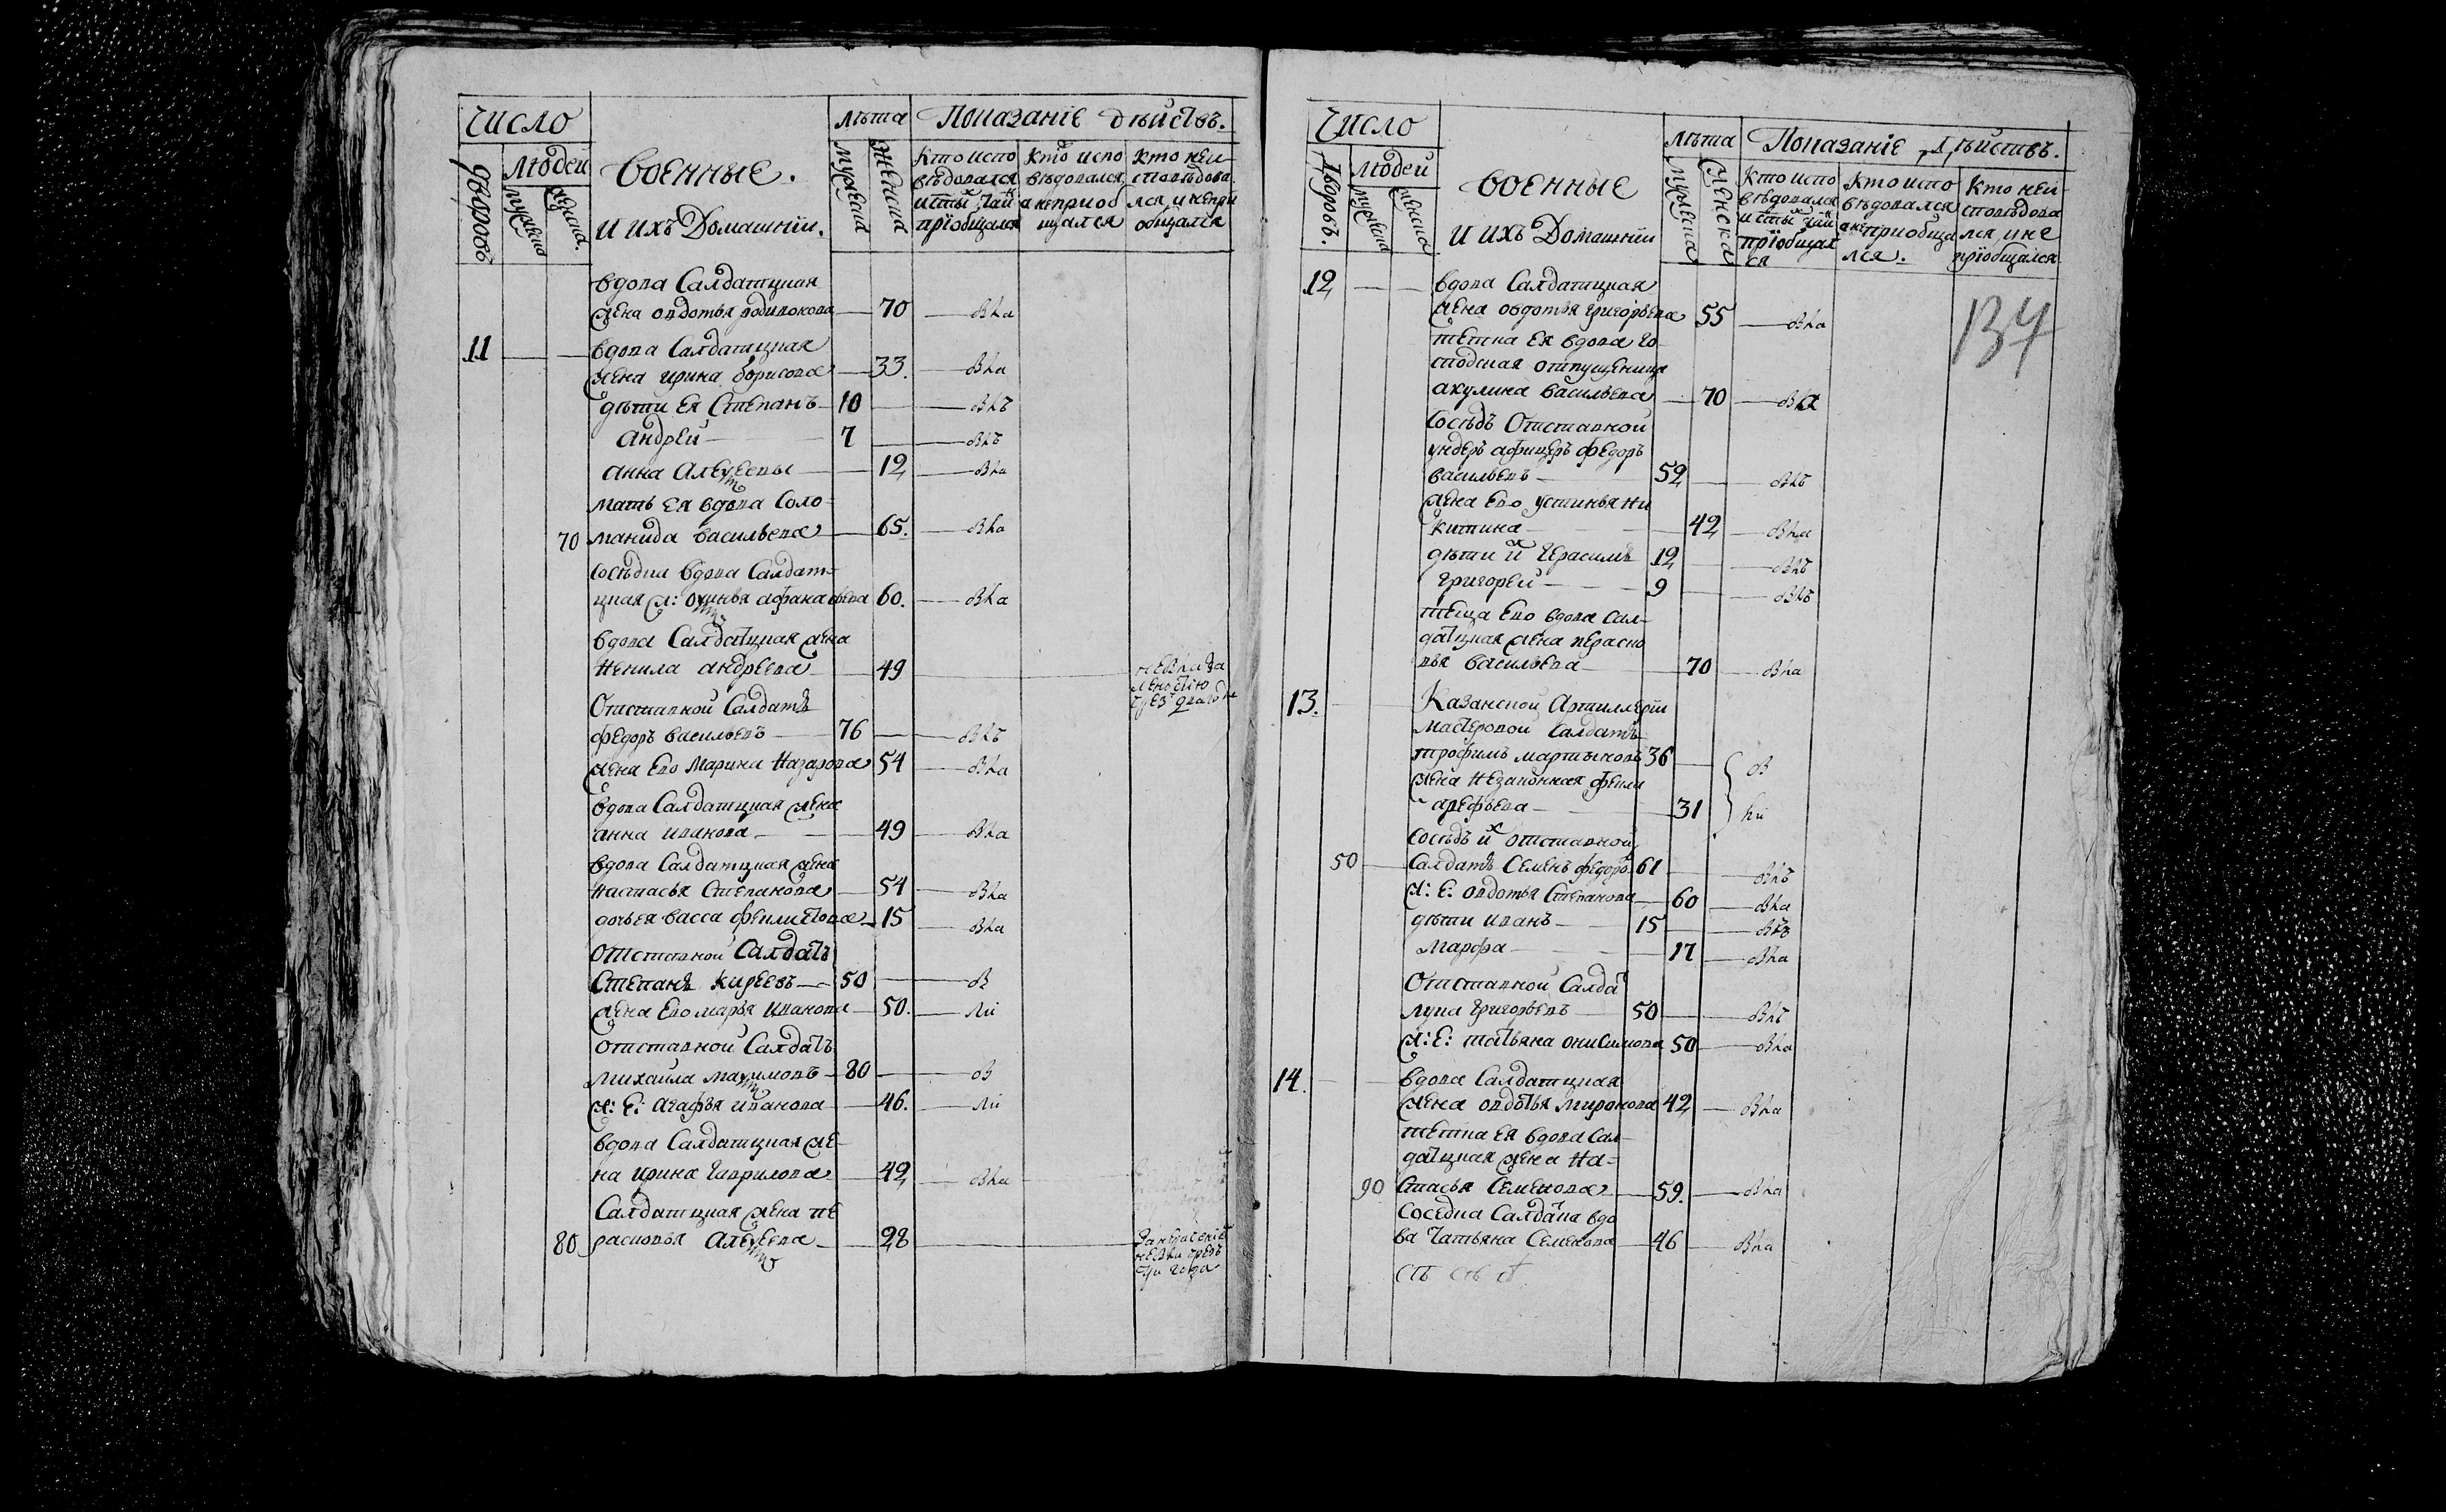 Число
Людей
дворовъ
мужеска
женска.
Военные.
и ихъ Домашнiи.
лѣта
мужеска
Женска
Показанiе дѣйствъ.
Кто испо
вѣдовался
и стыхъ таинъ
прiобщался
Кто испо
вѣдовался,
а неприоб
щался
Кто неи-
споведова
лся, и непри
общался
вдова Салдатцкая
жена овдотья родивонова 70 Вка
11 вдова Салдатцкая
жена ирина борисова 33. Вка
дѣти Ея Степанъ 10 Вкъ
андрей 7 Вкъ
анна Алеѯеевы 12 Вка
мать ея вдова Соло-
70 манида васильева 65. Вка
Сосѣдка вдова Салдат-
цкая ж: аѳанасьева 60. Вка
вдова Салдатцкая жена
Ненила андреева 49
Отставной Салдатъ
Федоръ васильевъ 76 Вкъ
жена Ево Марина Назарова 54 Вка
вдова Салдатцкая жена
анна иванова 49 Вка
вдова Салдатцкая жена
Настасья Степанова 54 Вка
дочь ея васса филистова 15 Вка
Отставной Салдатъ
Степанъ Киреевъ 50 В
жена Ево марья иванова 50. ли
отставной Салдатъ
михаила маѯимовъ 80 В
ж: Е: агафья иванова 46. ли
вдова Салдатцкая же-
на ирина гаврилова 42 Вка
Салдатцкая жена пе
80 расковья Алеѯеева 28
Число
дворовъ.
Людей
мужеска
женска
военные
и ихъ Домашнiи
лѣта
мужеска
женска
Показанiе дѣйствъ.
Кто испо
вѣдовался
и стыхъ таинъ
прiобщал
ся
Кто испо
вѣдовался
а неприобща
лся.
Кто неи-
споведова
лся, и не
прiобщался
134
12 вдова Салдатцкая
жена овдотья григорьева 55 Вка
тетка Ея вдова го-
сподская отпущеница
акулина васильева 70 Вка
Сосѣдъ Отставной
ундеръ афицеръ федоръ
васильевъ 52 Вкъ
жена Ево устинья ни
китина 42 Вка
дѣти ихъ Герасимъ 12 Вкъ
григорей 9 Вкъ
теща Ево вдова Сал-
датцкая жена пераско
вья васильева 70 Вка
13. Казанской Артиллерiи
мастеровой Салдатъ
трофимъ мартыновъ 36 В
жена Незаконная
арефьева 31 ки
Сосѣдъ ихъ отставной
50 Салдатъ Семенъ федоро 61 Вкъ
ж: Е: овдотья Степанова 60 Вка
дѣти иванъ 15 Вкъ
марфа 17 Вка
Отставной Салдатъ
лука григорьевъ 50 Вкъ
ж: Е: татьяна онисимова 50 Вка
14. вдова Салдатцкая
жена овдотья миронова 42 Вка
тетка ея вдова Сал-
датцкая жена На-
90 стасья Семенова 59. Вка
Соседка Салдатка вдо
ва Татьяна Семенова 46 Вка